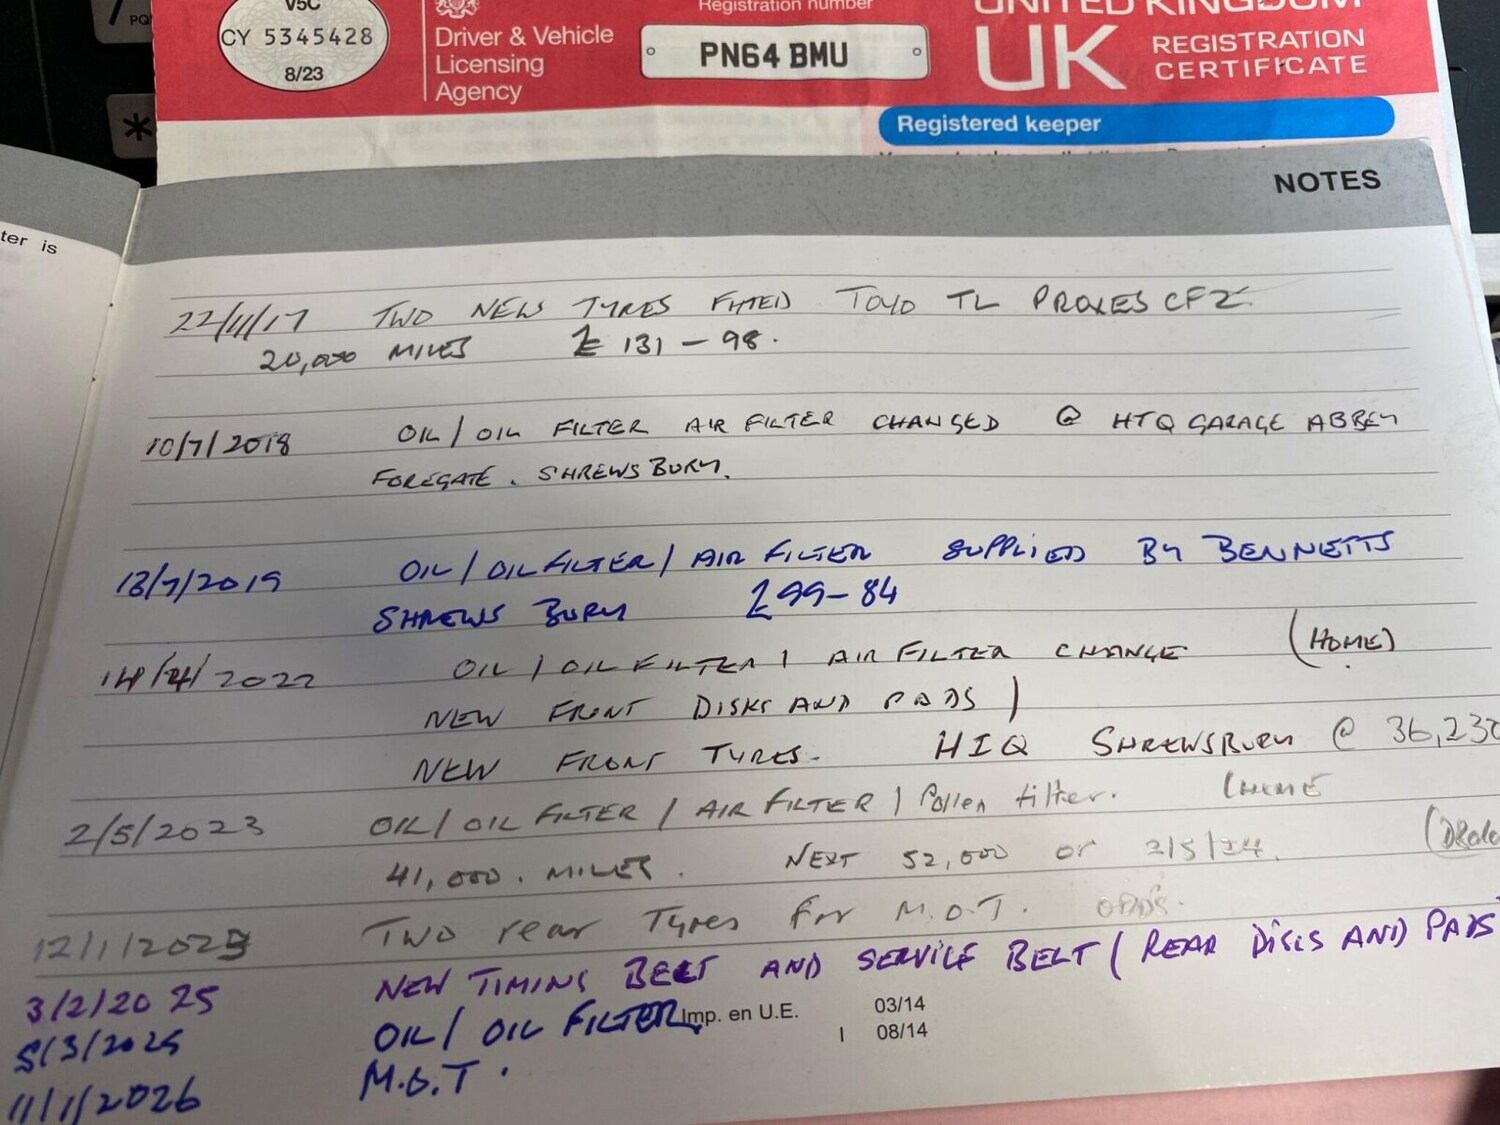 V5C
CY 5345428
8/23
Driver & Vehicle
Licensing
Agency
Registration number
PN64 BMU
UNITED KINGDOM
UK REGISTRATION
CERTIFICATE
Registered keeper
PQ
*
ter is
NOTES
22/11/17 TWO NEW TYRES FITTED TOYO TL PROXES CF2
20,000 MILES £131-98.
10/7/2018 OIL/OIL FILTER AIR FILTER CHANGED @ HTQ GARAGE ABBEY
FOREGATE. SHREWSBURY.
13/7/2019 OIL/OIL FILTER/AIR FILTER SUPPLIED BY BENNETTS
SHREWSBURY £99-84
14/4/2022 OIL/OIL FILTER/AIR FILTER CHANGE (HOME)
NEW FRONT DISKS AND PADS/
NEW FRONT TYRES. HIQ SHREWSBURY @ 36,230
2/5/2023 OIL/OIL FILTER/AIR FILTER/Pollen filter. (HOME
41,000. MILES. NEXT 52,000 or 2/5/24.
12/1/2025 TWO rear Tyres for M.O.T.
3/2/2025 NEW TIMING BELT AND SERVICE BELT (REAR DISCS AND PADS
5/3/2025 OIL/OIL FILTER
Imp. en U.E. 03/14
I 08/14
11/1/2026 M.O.T.